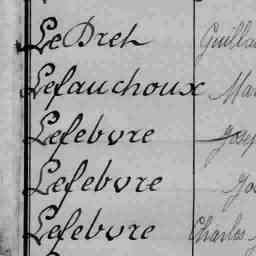 LeDret Guilla
Lefauchoux Ma
Lefebvre Josep
Lefebvre Jo
Lefebvre Charles